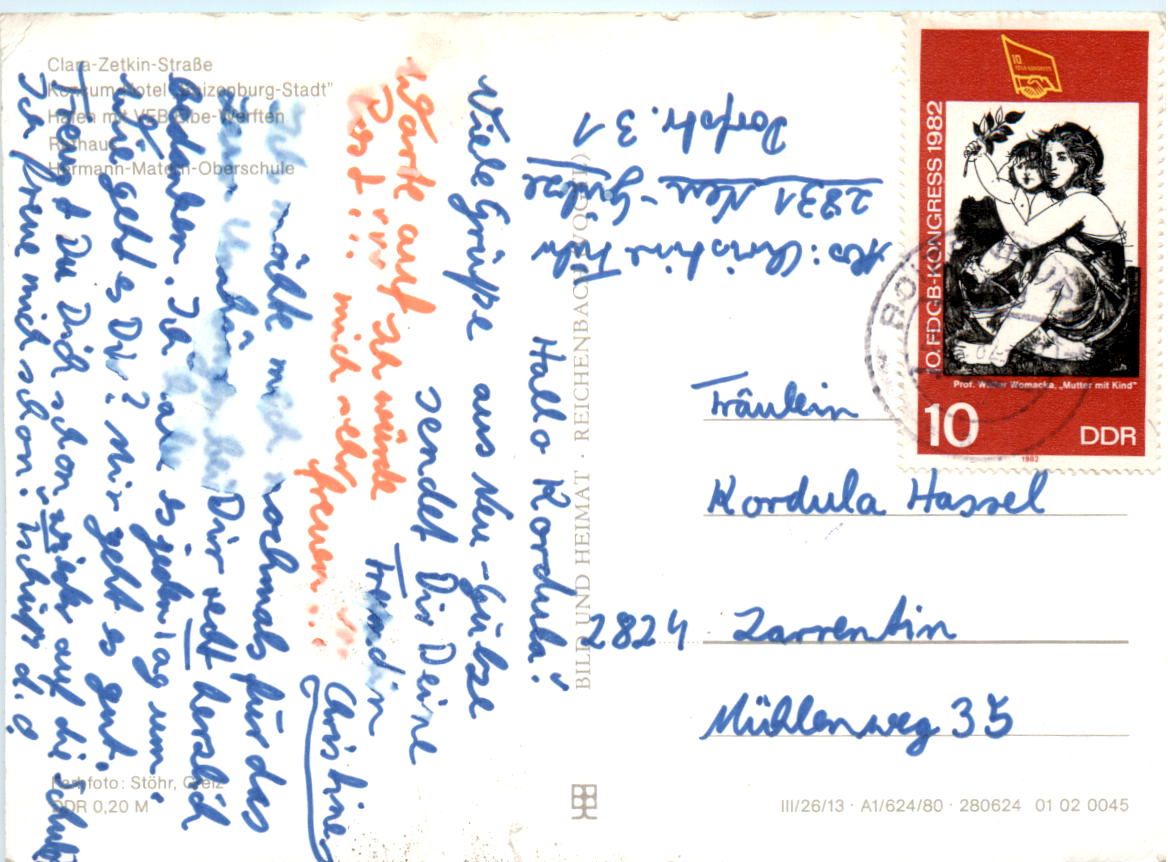 Clara-Zetkin-Straße
Konsum-Hotel „Boizenburg-Stadt”
Hafen mit VEB Elbe-Werften
Rathaus
Hermann-Matern-Oberschule
Hallo Kordula!
Viele Grüße aus Neu-Gülze
sendet Dir Deine
Freundin
Christine
Warte auf
Post!!! Ich würde
mich sehr
freuen!!!
Ich möchte mich nochmals für das
Dir recht herzlich
bedanken. Ich es jeden Tag um.
Wie geht es Dir? Mir geht es gut.
Freust Du Dich schon wieder auf die Schule
Ich freue mich schon.
Abs: Christine
2831 Neu-Gülze
Dorfstr. 31
BILD UND HEIMAT · REICHENBACH (VOGTL)
10
FDGB-KONGRESS
10. FDGB-KONGRESS 1982
Prof. Walter Womacka, „Mutter mit Kind"
10 DDR
1982
Fräulein
Kordula Hassel
2824 Zarrentin
Mühlenweg 35
Farbfoto: Stöhr, Greiz
DDR 0,20 M
III/26/13 · A1/624/80 · 280624 01 02 0045